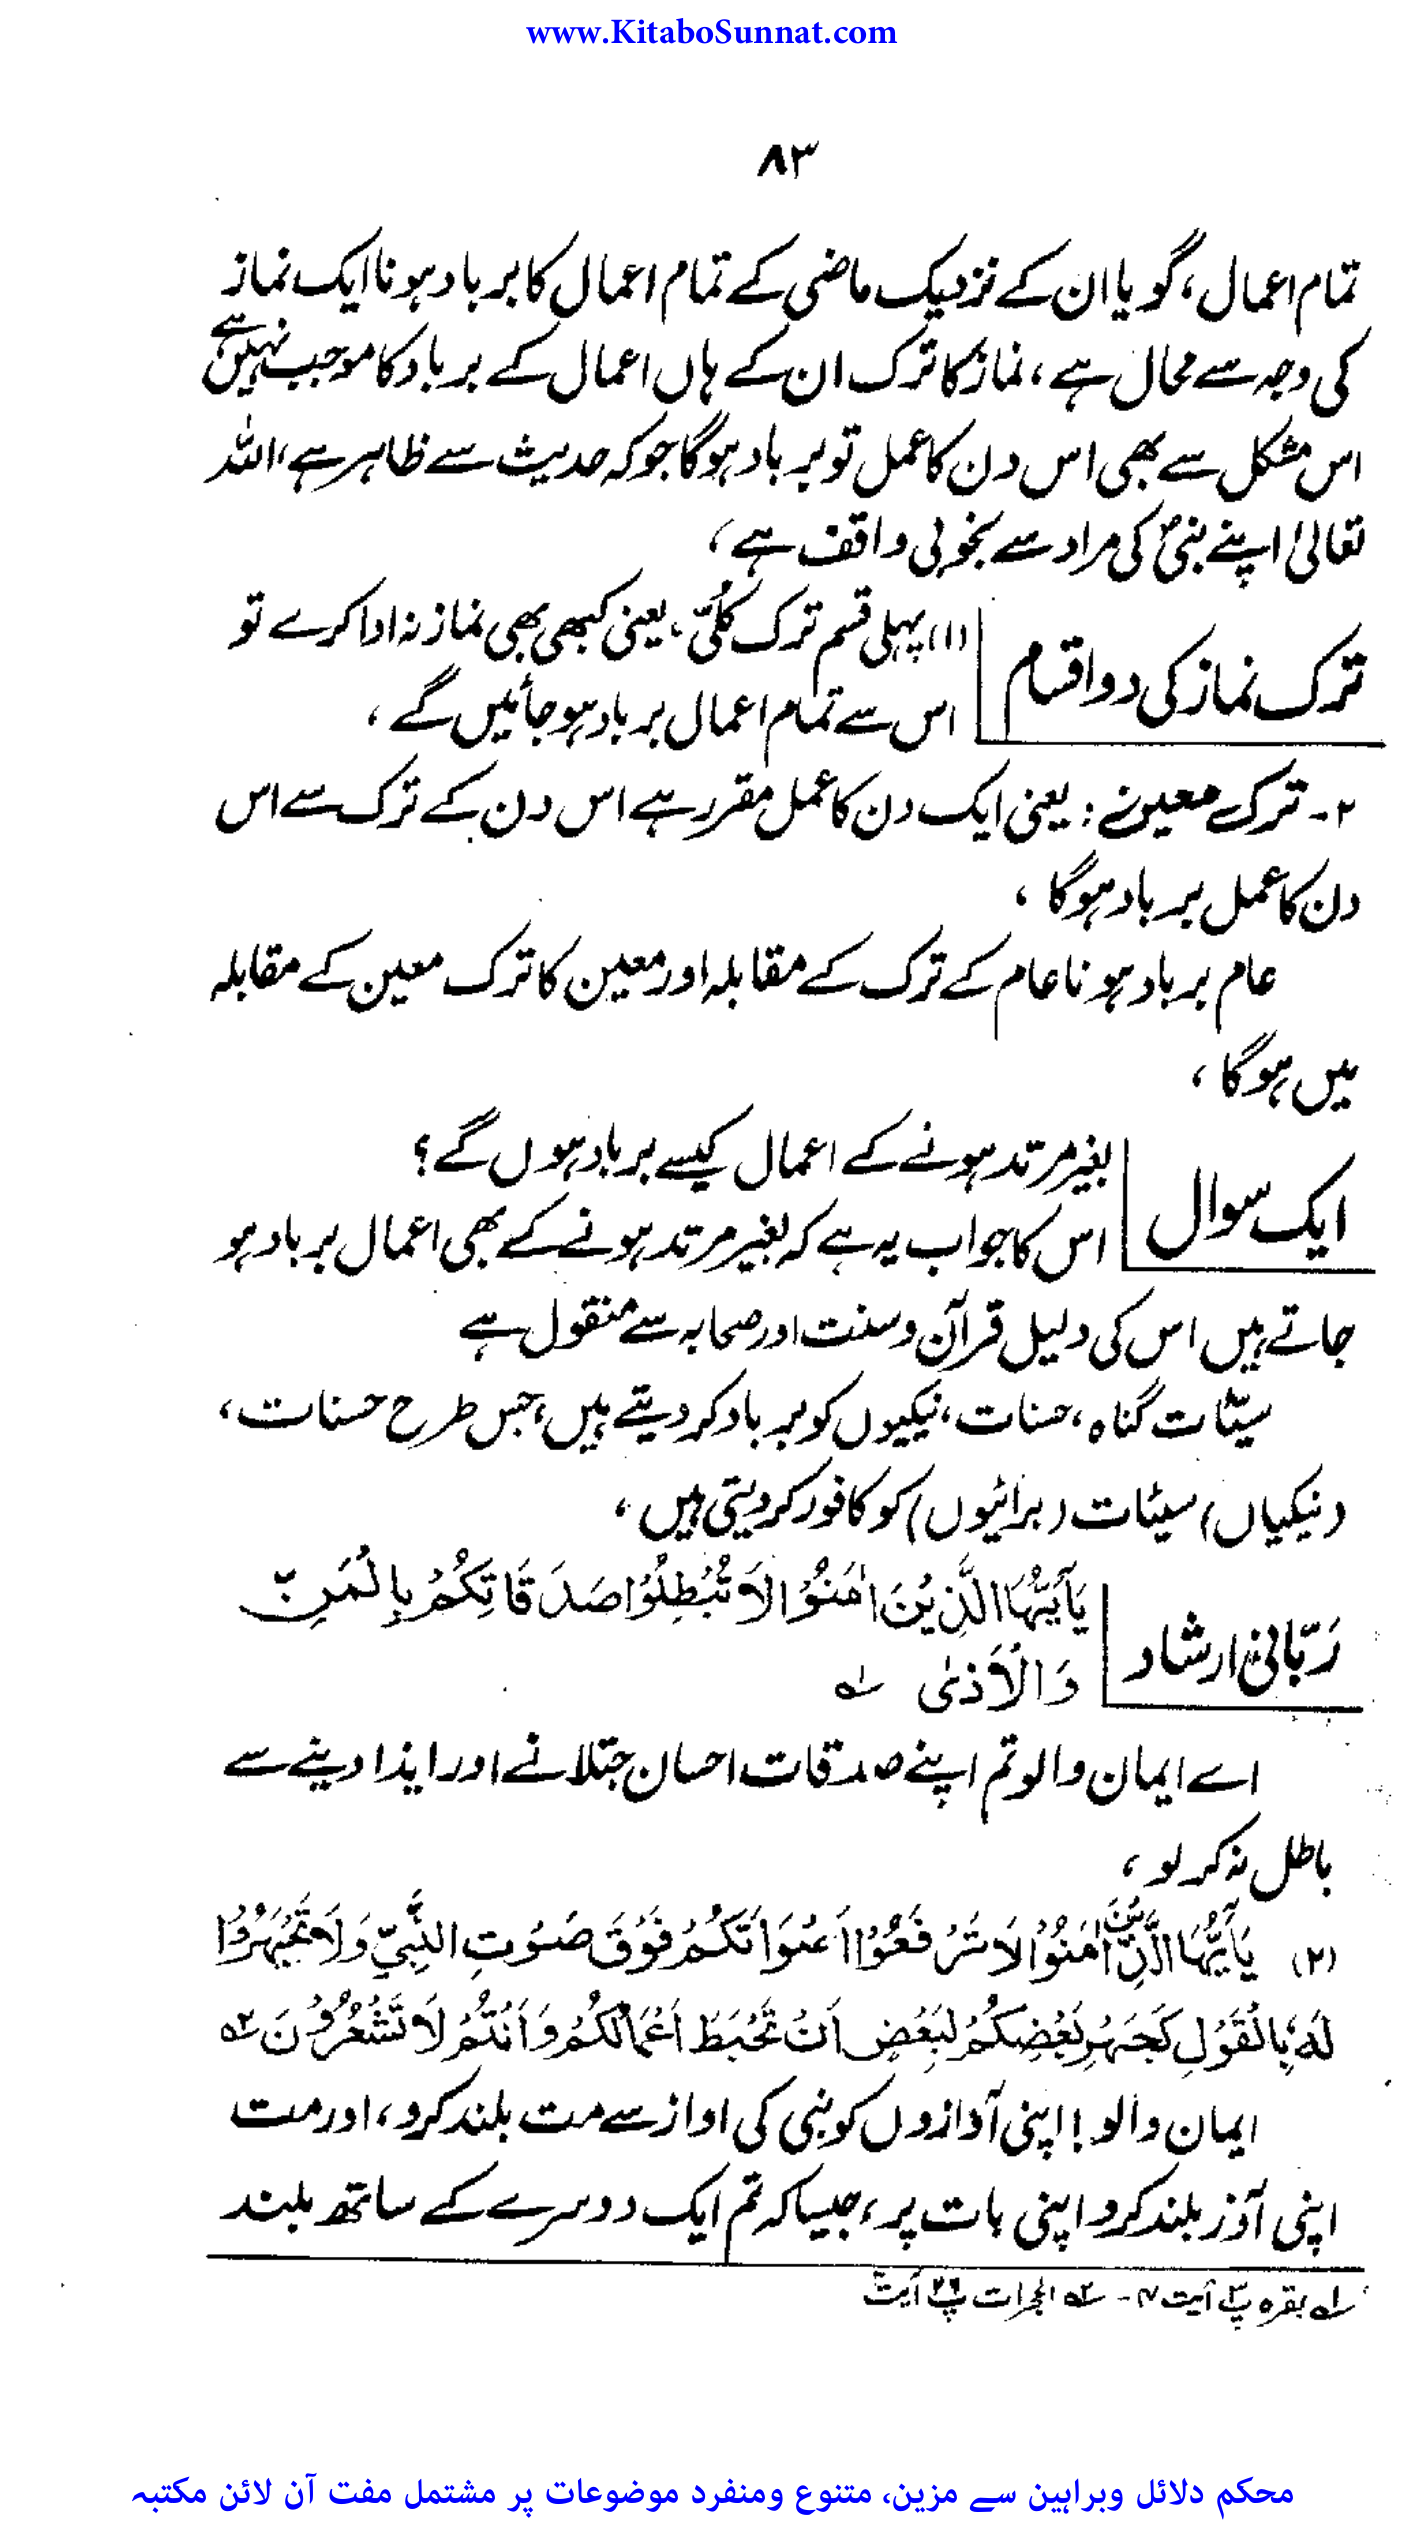 www.KitaboSunnat.com
۸۳
تمام اعمال، گویا ان کے نزدیک ماضی کے تمام اعمال کا برباد ہونا ایک نماز
کی وجہ سے محال ہے، نماز کا ترک ان کے ہاں اعمال کے برباد کا موجب نہیں ہے
اس مشکل سے بھی اس دن کا عمل تو برباد ہوگا جو کہ حدیث سے ظاہر ہے، اللہ
تعالیٰ اپنے نبیؐ کی مراد سے بخوبی واقف ہے،
ترک نماز کی دو اقسام
(۱) پہلی قسم ترک کُلّی، یعنی کبھی بھی نماز نہ ادا کرے تو
اس سے تمام اعمال برباد ہو جائیں گے،
۲۔ ترک معین: یعنی ایک دن کا عمل مقرر ہے اس دن کے ترک سے اس
دن کا عمل برباد ہوگا،
عام برباد ہونا عام کے ترک کے مقابلہ اور معین کا ترک معین کے مقابلہ
میں ہوگا،
ایک سوال
بغیر مرتد ہونے کے اعمال کیسے برباد ہوں گے؟
اس کا جواب یہ ہے کہ بغیر مرتد ہونے کے بھی اعمال برباد ہو
جاتے ہیں اس کی دلیل قرآن و سنت اور صحابہ سے منقول ہے
سیّئات گناہ، حسنات، نیکیوں کو برباد کر دیتے ہیں، جس طرح حسنات،
(نیکیاں) سیئات (برائیوں) کو کافور کر دیتی ہیں،
رَبّانی ارشاد
يَآ اَيُّهَا الَّذِيْنَ اٰمَنُوْا لَا تُبْطِلُوْا صَدَقَاتِكُمْ بِالْمَنِّ
وَالْاَذٰى ۱؎
اے ایمان والو تم اپنے صدقات احسان جتلانے اور ایذا دینے سے
باطل نہ کر لو،
(۲) يَآ اَيُّهَا الَّذِيْنَ اٰمَنُوْا لَا تَرْفَعُوْا اَصْوَاتَكُمْ فَوْقَ صَوْتِ النَّبِيِّ وَلَا تَجْهَرُوْا
لَهٗ بِالْقَوْلِ كَجَهْرِ بَعْضِكُمْ لِبَعْضٍ اَنْ تَحْبَطَ اَعْمَالُكُمْ وَاَنْتُمْ لَا تَشْعُرُوْنَ ۲؎
ایمان والو! اپنی آوازوں کو نبی کی اواز سے مت بلند کرو، اور مت
اپنی آوز بلند کرو اپنی بات پر، جیسا کہ تم ایک دوسرے کے ساتھ بلند
۱؎ بقرہ پ۳ آیت ۴۔ ۲؎ الحجرات پ۲۶ آیت
محکم دلائل وبراہین سے مزین، متنوع ومنفرد موضوعات پر مشتمل مفت آن لائن مکتبہ